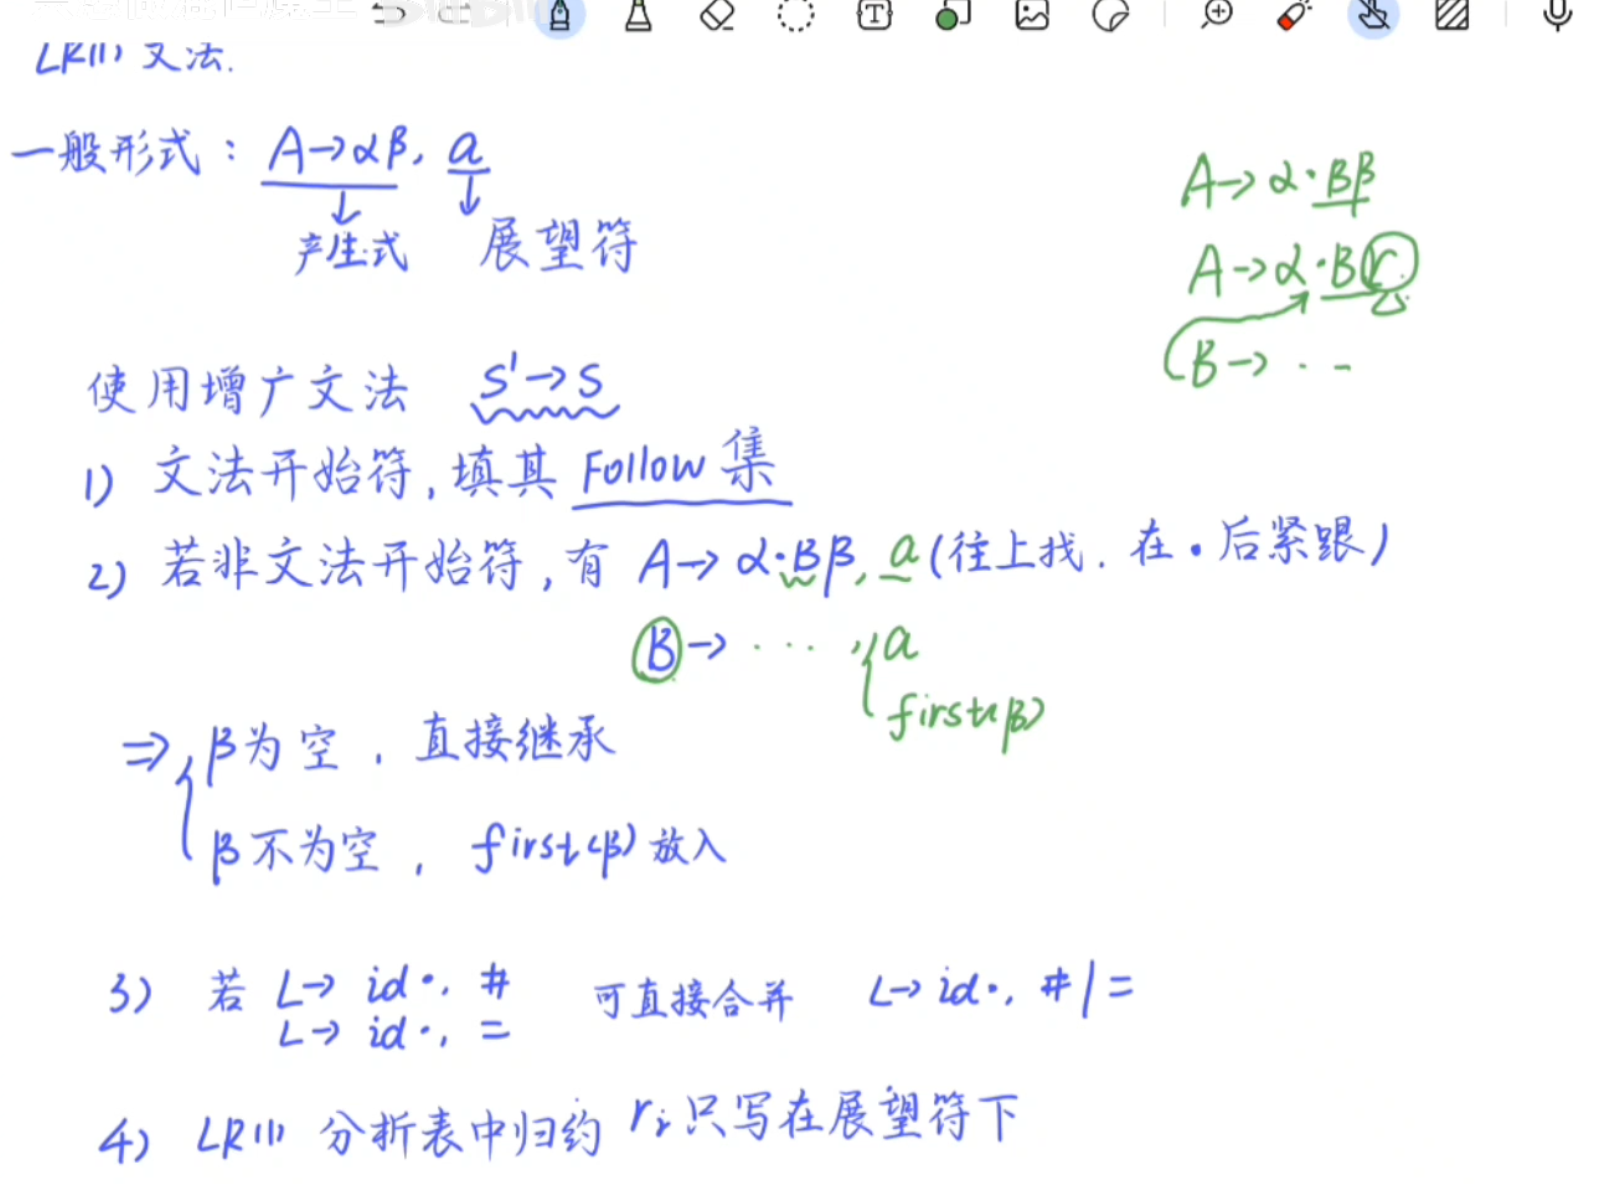 LR(1) 文法.
一般形式: A→αβ, a
产生式 展望符
A→α·Bβ
A→α·Br
B→ · · -
使用增广文法 S'→S
1) 文法开始符, 填其 Follow 集
2) 若非文法开始符, 有 A→α·Bβ, a (往上找. 在·后紧跟)
B→ · · · · , a
first(β)
⇒ β为空, 直接继承
β不为空, first(β) 放入
3) 若 L→ id·, # 可直接合并 L→id·, #|=
L→ id·, =
4) LR(1) 分析表中归约 ri 只写在展望符下